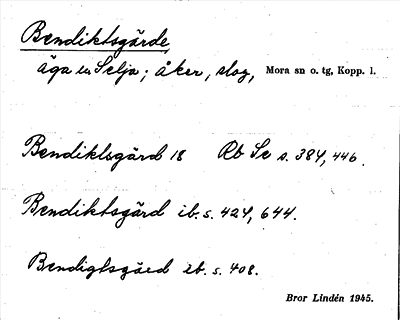 Bendiktsgärde,
äga i Selja; åker, slog, Mora sn o. tg, Kopp. l.
Bendiktsgärd 18 Rb Se s. 384, 446.
Bendiktsgärd ib. s. 424, 644.
Bendigtsgärd ib. s. 408.
Bror Lindén 1945.